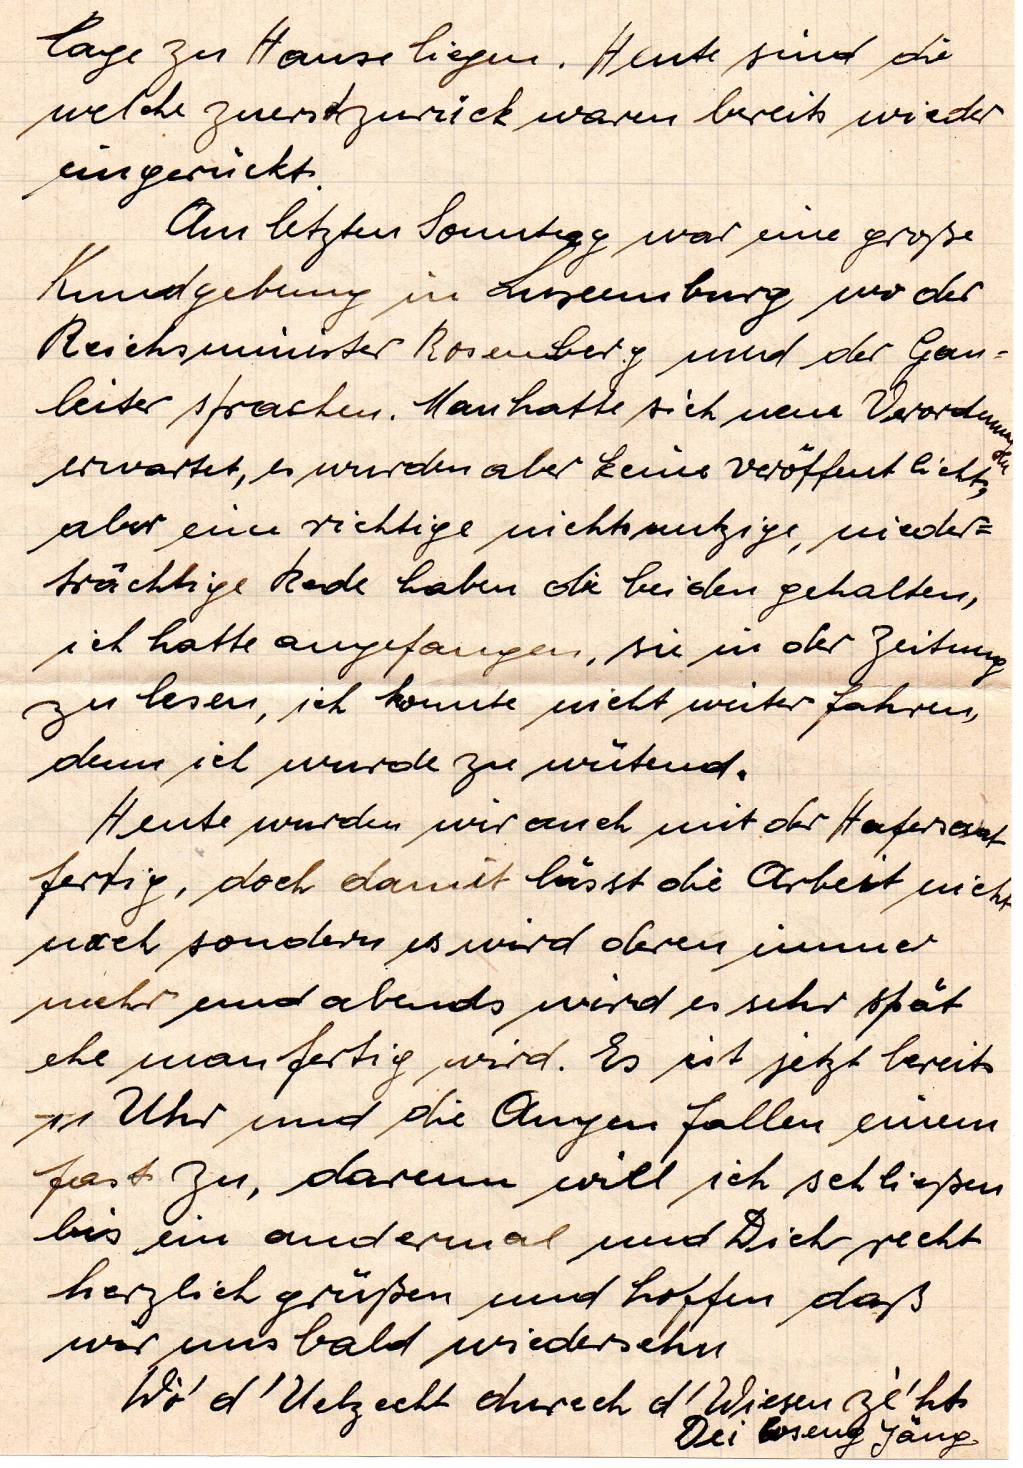 lage zu Hause liegen. Heute sind die
welche zuerst zurück waren bereits wieder
eingerückt.
Am letzten Sonntag war eine große
Kundgebung in Luxemburg wo der
Reichsminister Rosenberg und der Gau-
leiter sprachen. Man hatte sich neue Verordnungen
erwartet, es wurden aber keine veröffentlicht,
aber eine richtige nichtsnutzige, nieder=
trächtige Rede haben die beiden gehalten,
ich hatte angefangen, sie in der Zeitung
zu lesen, ich konnte nicht weiter fahren,
denn ich wurde zu wütend.
Heute wurden wir auch mit der Hafersaat
fertig, doch damit lässt die Arbeit nicht
nach sondern es wird deren immer
mehr und abends wird es sehr spät
ehe man fertig wird. Es ist jetzt bereits
11 Uhr und die Augen fallen einem
fast zu, darum will ich schließen
bis ein andermal und Dich recht
herzlich grüßen und hoffen daß
wir uns bald wiedersehn
Wó d'Uelzecht durech d'Wiesen zé'ht
Dei Jäng